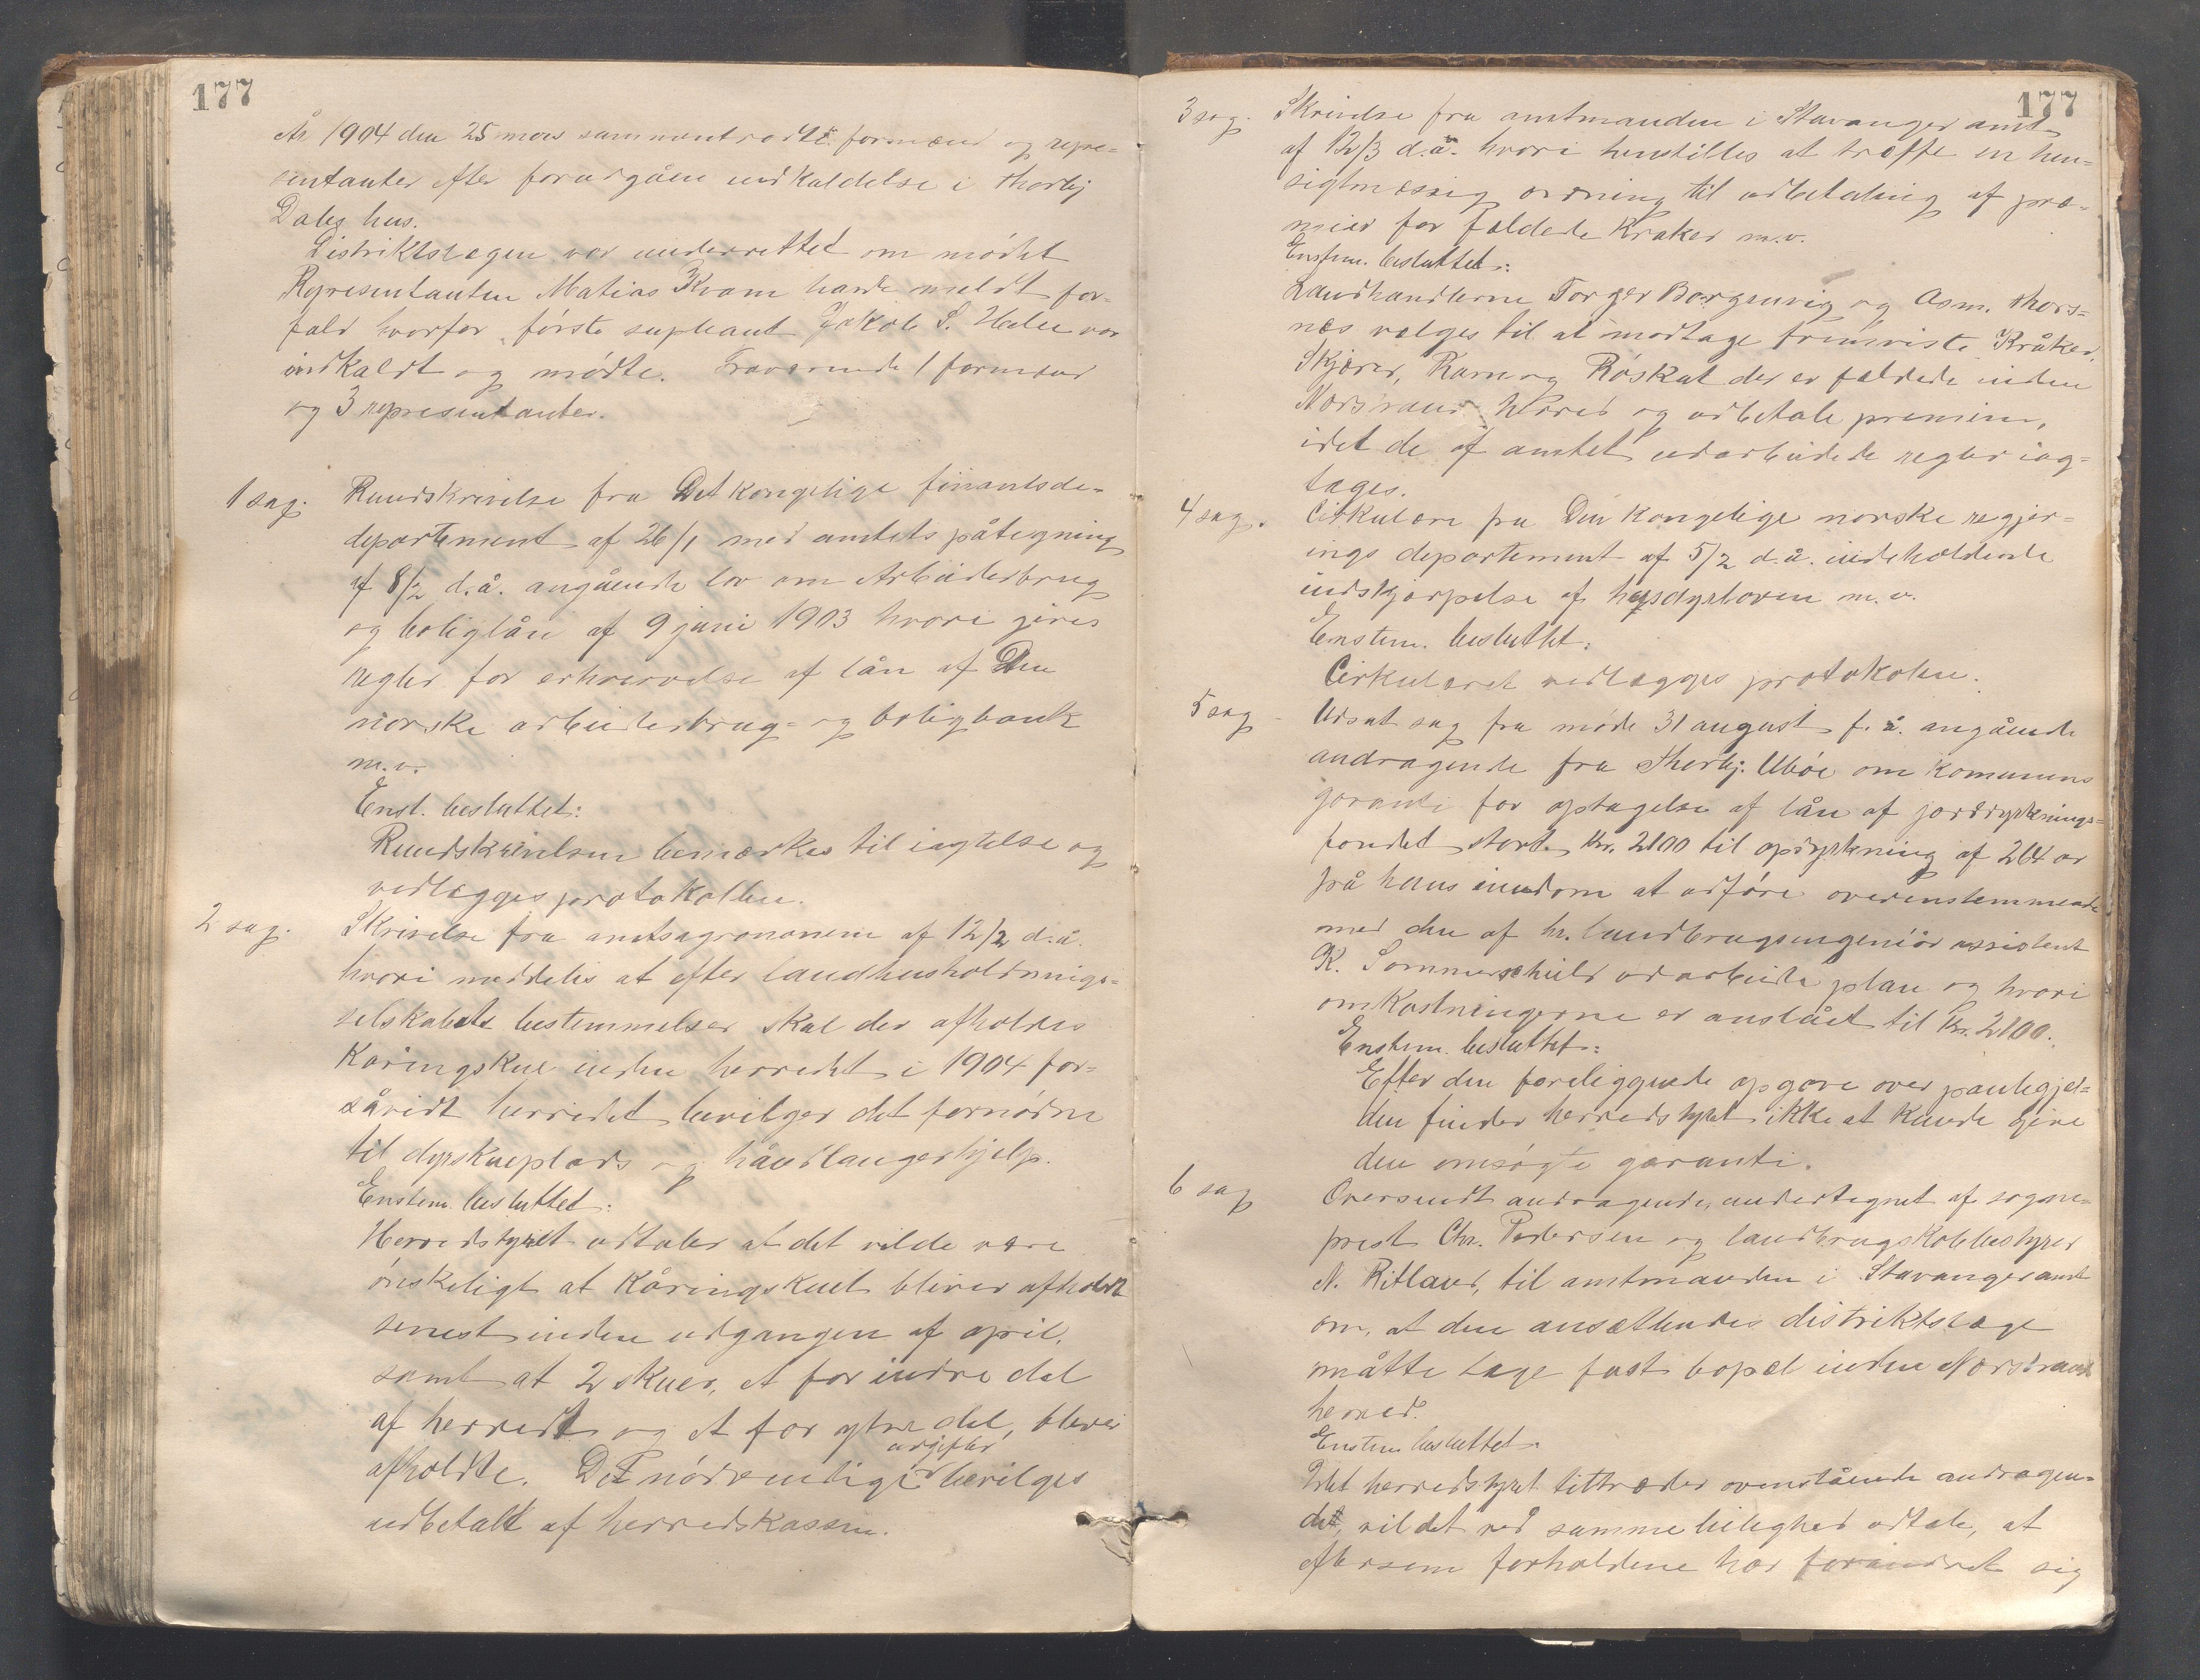 177
År 1904 den 25 mars sammentrådte formænd og repre-
sentanter efter forudgåen indkaldelse i Thorbj
Dales hus.
Distriktslægen var underrettet om mødet
Representanten Matias Kvam havde meldt for-
fald hvorfor første supleant Jakob S. Helle var
indkaldt og mødte. Fraværende 1 formand
og 3 representanter.
1 sag. Rundskrivelse fra Det kongelige finantsde-
departement af 26/1 med amtets påtegning
af 8/2 d.å. angående lov om Arbeiderbrug
og boliglån af 9 juni 1903 hvori gives
regler for erhvervelse af lån af Den
norske arbeiderbrug- og boligbank
m.v.
Enst. besluttet:
Rundskrivelsen bemærkes til iagtelse og
vedlægges protokollen.
2 sag. Skrivelse fra amtsagronomen af 12/2 d.å.
hvori meddeles at efter landhusholdnings-
selskabets bestemmelser skal der afholdes
Kåringskue inden herredet i 1904 for-
såvidt herredet bevilger det fornødne
til dyrskueplads og håndlangerhjelp.
Enstem. besluttet:
Herredstyret udtaler at det vilde være
ønskeligt at Kåringskuet bliver afholdt
senest inden udgangen af april,
samt at 2 skuer, et for indre del
af herredet og et for ytre del, bliver
afholdte. Det nødvendige udgifter bevilges
udbetalt af herredskassen.
177
3 sag. Skrivelse fra amtmanden i Stavanger amt
af 12/3 d.å. hvori henstilles at træffe en hen-
sigtmæssig ordning til udbetaling af præ-
mier for fældede Kraker m.v.
Enstem. besluttet:
Landhandlerne Torger Borgenvig og Asm. Thors-
næs vælges til at modtage fremviste Kråker,
Skjærer, Ram og Røskat der er fældede inden
Nærstrand herred og udbetale premien,
idet de af amtet udarbeidede regler iag-
tages.
4 sag. Cirkulære fra Den Kongelige norske regjer-
ings departement af 5/2 d.å. indeholdende
indskjærpelse af husdyrloven m.v.
Enstem. besluttet:
Cirkulæret vedlægges protokolen.
5 sag Udsat sag fra møde 31 august f.å. angående
andragende fra Thorbj. Ubøe om Kommunens
garanti for optagelse af lån af jorddyrknings-
fondet stort Kr. 2100 til opdyrkning af 204 ar
på hans eiendom at udføre overenstemmende
med den af hr. landbrugsingeniør assistent
K. Sommerschield udarbeide plan og hvori
omkostningerne er anslået til Kr. 2100.
Enstem. besluttet:
Efter den foreliggende opgave over pantegjel-
den finder herredstyret ikke at kunde give
den omsøgte garanti.
6 sag Oversendt andragende, undertegnet af sogne-
prest Chr. Pedersen og landbrugskolebestyrer
N. Ritland, til amtmanden i Stavanger amt
om, at den ansættendes distriktslæge
måtte tage fast bopæl inden Nærstrand
herred.
Enstem besluttet.
Idet herredstyret tiltræder ovenstående andragen-
det, vil det ved samme leilighed udtale, at
eftersom forholdene har forandret sig